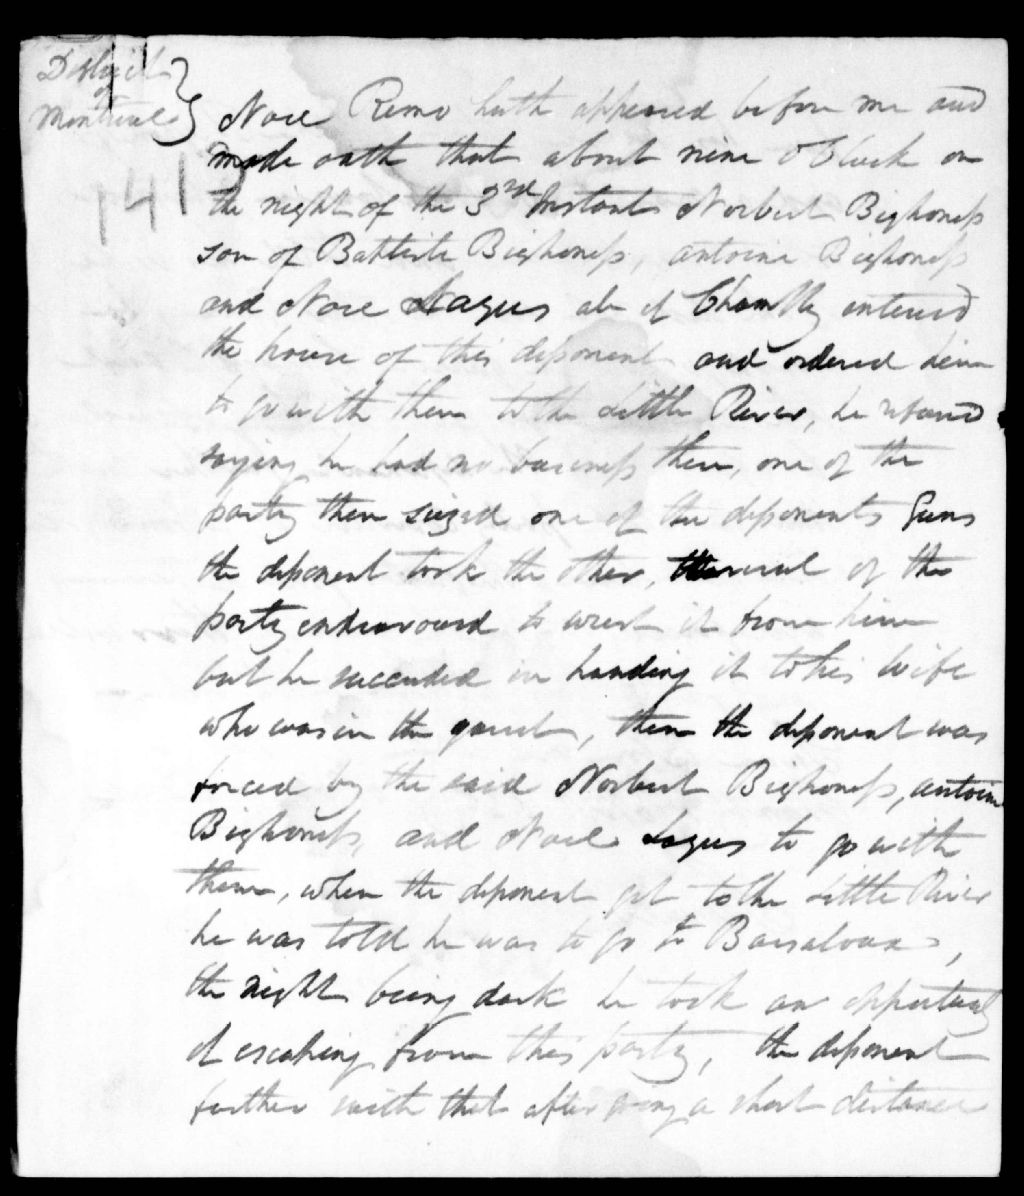 District
of
Montreal
141
Noel Remo hath appeared before me and
made oath that about nine O Clock on
the night of the 3rd Instant Norbert Bighoness
son of Battiste Bighoness, antoine Bighoness
and Noel Lagus all of Chambly entered
the house of this deponent and ordered him
to go with them to the Little River, he refused
saying he had no business there, one of the
party then seized one of the deponents Guns
the deponent took the other, several of the
party endeavoured to wrest it from him
but he succeeded in handing it to his wife
who was in the garret, then the deponent was
forced by the said Norbert Bighoness, antoine
Bighoness, and Noel Lagus to go with
them, when the deponent got to the Little River
he was told he was to go to
the night being dark he took an oppertunity
of escaping from this party, the deponent
further saith that after going a short distance